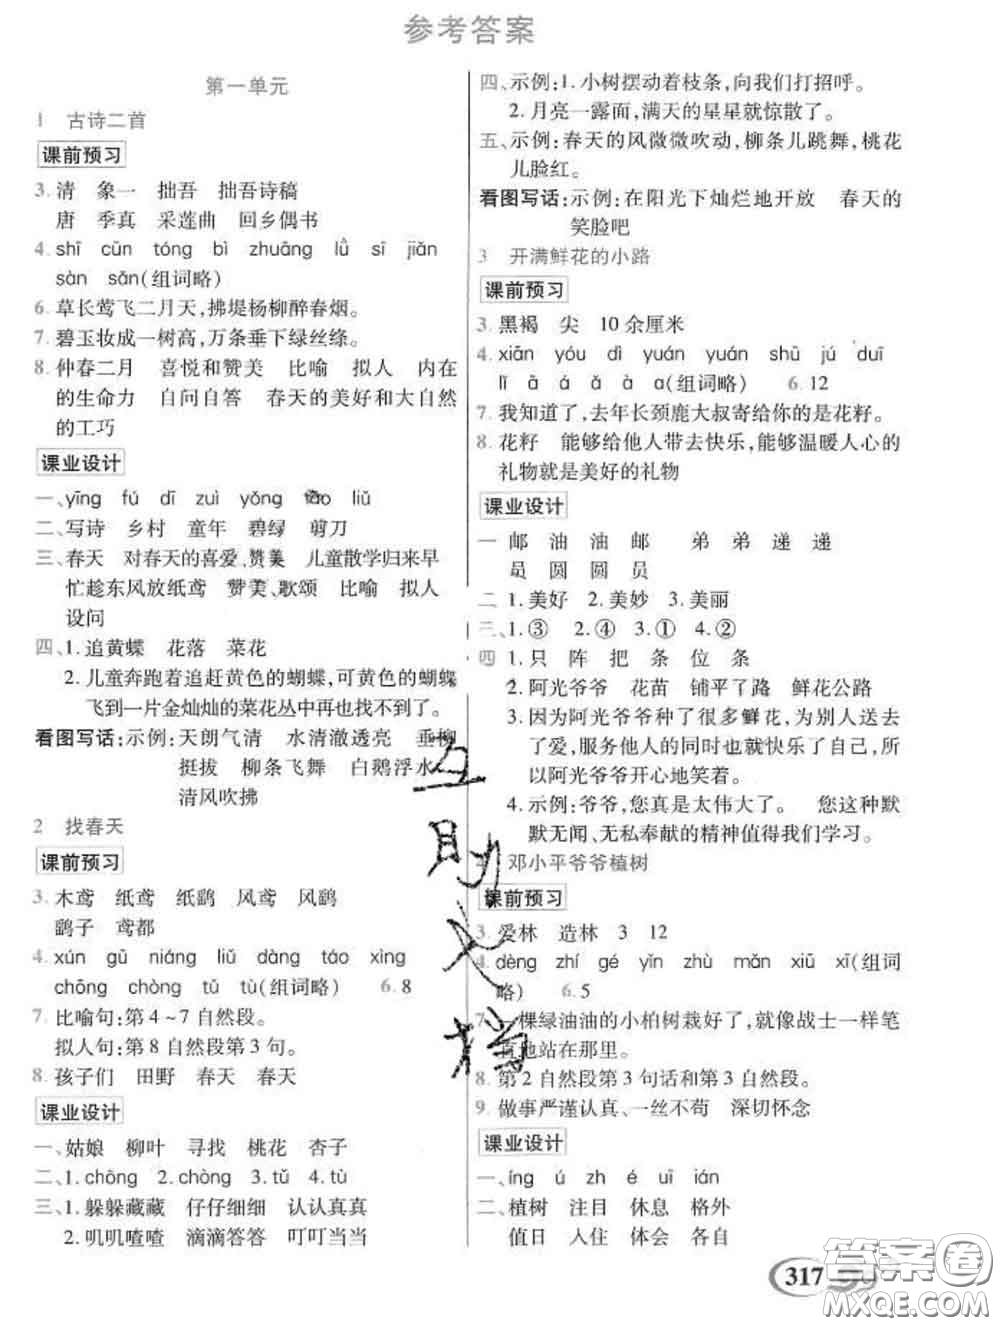 参考答案
第一单元
1 古诗二首
课前预习
3. 清 象一 拙吾 拙吾诗稿
唐 季真 采莲曲 回乡偶书
4. shī cūn tóng bì zhuāng lǜ sī jiǎn
sàn sǎn(组词略)
6. 草长莺飞二月天,拂堤杨柳醉春烟。
7. 碧玉妆成一树高,万条垂下绿丝绦。
8. 仲春二月 喜悦和赞美 比喻 拟人 内在
的生命力 自问自答 春天的美好和大自然
的工巧
课业设计
一、yīng fú dī zuì yǒng tāo liǔ
二、写诗 乡村 童年 碧绿 剪刀
三、春天 对春天的喜爱、赞美 儿童散学归来早
忙趁东风放纸鸢 赞美、歌颂 比喻 拟人
设问
四、1. 追黄蝶 花落 菜花
2. 儿童奔跑着追赶黄色的蝴蝶,可黄色的蝴蝶
飞到一片金灿灿的菜花丛中再也找不到了。
看图写话:示例:天朗气清 水清澈透亮 垂柳
挺拔 柳条飞舞 白鹅浮水
清风吹拂
2 找春天
课前预习
3. 木鸢 纸鸢 纸鹞 风鸢 风鹞
鹞子 鸢都
4. xún gū niáng liǔ dàng táo xìng
chōng chòng tǔ tù(组词略) 6. 8
7. 比喻句:第 4~7 自然段。
拟人句:第 8 自然段第 3 句。
8. 孩子们 田野 春天 春天
课业设计
一、姑娘 柳叶 寻找 桃花 杏子
二、1. chōng 2. chòng 3. tǔ 4. tù
三、1. 躲躲藏藏 仔仔细细 认认真真
2. 叽叽喳喳 滴滴答答 叮叮当当
四、示例:1. 小树摆动着枝条,向我们打招呼。
2. 月亮一露面,满天的星星就惊散了。
五、示例:春天的风微微吹动,柳条儿跳舞,桃花
儿脸红。
看图写话:示例:在阳光下灿烂地开放 春天的
笑脸吧
3 开满鲜花的小路
课前预习
3. 黑褐 尖 10 余厘米
4. xiān yóu dì yuán yuán shū jú duī
lǐ ā á ǎ à a(组词略) 6. 12
7. 我知道了,去年长颈鹿大叔寄给你的是花籽。
8. 花籽 能够给他人带去快乐,能够温暖人心的
礼物就是美好的礼物
课业设计
一 邮 油 油 邮 弟 弟 递 递
员 圆 圆 员
二 1. 美好 2. 美妙 3. 美丽
三、1. ③ 2. ④ 3. ① 4. ②
四 1. 只 阵 把 条 位 条
2. 阿光爷爷 花苗 铺平了路 鲜花公路
3. 因为阿光爷爷种了很多鲜花,为别人送去
了爱,服务他人的同时也就快乐了自己,所
以阿光爷爷开心地笑着。
4. 示例:爷爷,您真是太伟大了。 您这种默
默无闻、无私奉献的精神值得我们学习。
邓小平爷爷植树
课前预习
3. 爱林 造林 3 12
4. dèng zhí gé yǐn zhù mǎn xiū xī(组词
略) 6. 5
7. 一棵绿油油的小柏树栽好了,就像战士一样笔
直地站在那里。
8. 第 2 自然段第 3 句话和第 3 自然段。
9. 做事严谨认真、一丝不苟 深切怀念
课业设计
一、íng ú zh é uī ián
二、植树 注目 休息 格外
值日 人住 体会 各自
317
答案圈
MXQE.COM